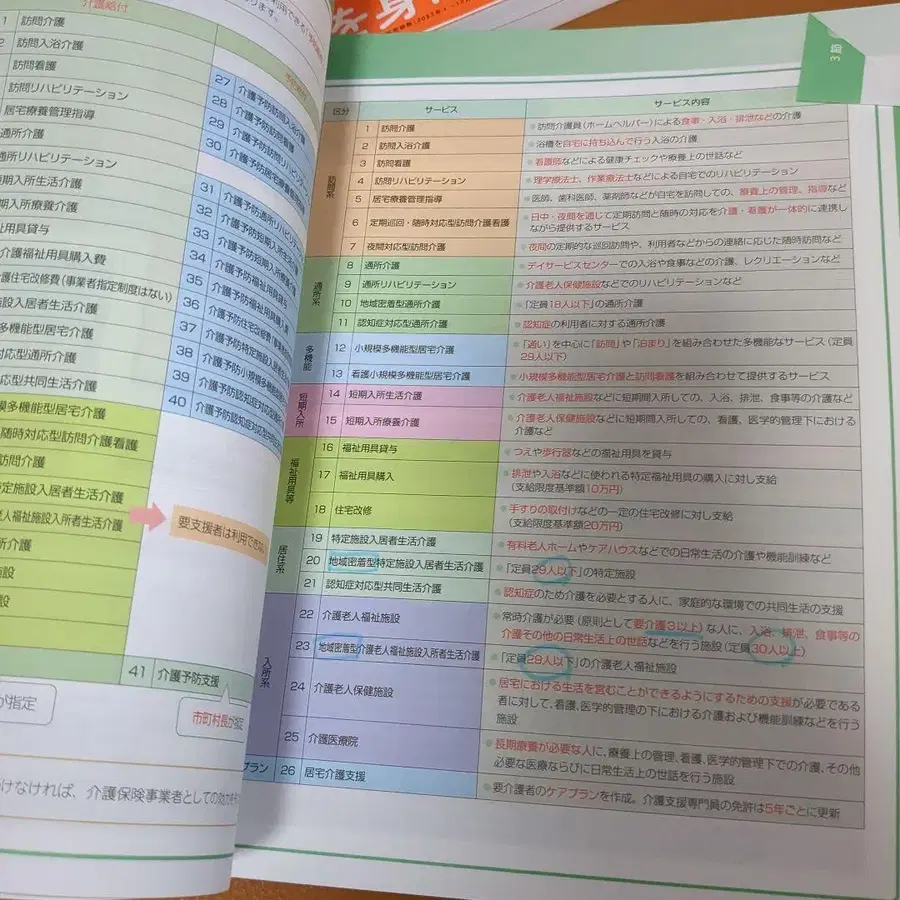 介護給付
1 訪問介護
2 訪問入浴介護
訪問看護
訪問リハビリテーション
居宅療養管理指導
通所介護
通所リハビリテーション
短期入所生活介護
期入所療養介護
祉用具貸与
介護福祉用具購入費
護住宅改修費(事業者指定制度はない)
施設入居者生活介護
多機能型居宅介護
対応型通所介護
応型共同生活介護
模多機能型居宅介護
随時対応型訪問介護看護
訪問介護
定施設入居者生活介護
老人福祉施設入所者生活介護
所介護
設
設
27 介護予防訪問入浴介護
28 介護予防訪問看護
29 介護予防訪問リハビリ
30 介護予防居宅療養管理
31 介護予防通所リハビリテ
32 介護予防短期入所生
33 介護予防短期入所療
34 介護予防福祉用具貸与
35 特定介護予防福祉用具
36 介護予防住宅改修費
37 介護予防特定施設入居
38 介護予防小規模多機能
39 介護予防認知症対応型
40 介護予防認知症対応型
要支援者は利用できない
41 介護予防支援
が指定
市町村長が
けなければ、介護保険事業者としての
3 節
区分 サービス サービス内容
訪問系
1 訪問介護 ●訪問介護員(ホームヘルパー)による食事・入浴・排泄などの介護
2 訪問入浴介護 ●浴槽を自宅に持ち込んで行う入浴の介護
3 訪問看護 ●看護師などによる健康チェックや療養上の世話など
4 訪問リハビリテーション ●理学療法士、作業療法士などによる自宅でのリハビリテーション
5 居宅療養管理指導 ●医師、歯科医師、薬剤師などが自宅を訪問しての、療養上の管理、指導など
6 定期巡回・随時対応型訪問介護看護 ●日中・夜間を通して定期訪問と随時の対応を介護・看護が一体的に連携し
ながら提供するサービス
7 夜間対応型訪問介護 ●夜間の定期的な巡回訪問や、利用者などからの連絡に応じた随時訪問など
通所系
8 通所介護 ●デイサービスセンターでの入浴や食事などの介護、レクリエーションなど
9 通所リハビリテーション ●介護老人保健施設などでのリハビリテーションなど
10 地域密着型通所介護 ●「定員18人以下」の通所介護
11 認知症対応型通所介護 ●認知症の利用者に対する通所介護
多機能
12 小規模多機能型居宅介護 ●「通い」を中心に「訪問」や「泊まり」を組み合わせた多機能なサービス(定員
29人以下)
13 看護小規模多機能型居宅介護 ●小規模多機能型居宅介護と訪問看護を組み合わせて提供するサービス
短期入所
14 短期入所生活介護 ●介護老人福祉施設などに短期間入所しての、入浴、排泄、食事等の介護など
15 短期入所療養介護 ●介護老人保健施設などに短期間入所しての、看護、医学的管理下における
介護など
福祉用具等
16 福祉用具貸与 ●つえや歩行器などの福祉用具を貸与
17 福祉用具購入 ●排泄や入浴などに使われる特定福祉用具の購入に対し支給
(支給限度基準額10万円)
18 住宅改修 ●手すりの取付けなどの一定の住宅改修に対し支給
(支給限度基準額20万円)
居住系
19 特定施設入居者生活介護 ●有料老人ホームやケアハウスなどでの日常生活の介護や機能訓練など
20 地域密着型特定施設入居者生活介護 ●「定員29人以下」の特定施設
21 認知症対応型共同生活介護 ●認知症のため介護を必要とする人に、家庭的な環境での共同生活の支援
入所系
22 介護老人福祉施設 ●常時介護が必要(原則として要介護3以上)な人に、入浴、排泄、食事等の
介護その他の日常生活上の世話などを行う施設(定員30人以上)
23 地域密着型介護老人福祉施設入所者生活介護 ●「定員29人以下」の介護老人福祉施設
24 介護老人保健施設 ●居宅における生活を営むことができるようにするための支援が必要である
者に対して、看護、医学的管理の下における介護および機能訓練などを行う
施設
25 介護医療院 ●長期療養が必要な人に、療養上の管理、看護、医学的管理下での介護、その他
必要な医療ならびに日常生活上の世話を行う施設
プラン 26 居宅介護支援 ●要介護者のケアプランを作成。介護支援専門員の免許は5年ごとに更新